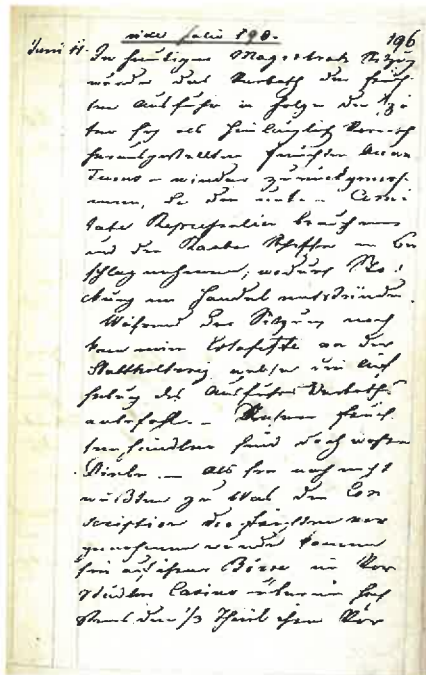 vide folio 190. 196
Juni 11. In heutiger Magistrats Sitzung
wurde das Verboth der Früch
ten Ausfuhr in Folge der
als hinlänglich
herausgestellten Früchten
wieder zurückgenom
men, da die
tate Repressalien brauchen
und die Raaber Schiffe in Be
schlag nehmen, wodurch Sto
ckung im Handel entstünde.
Während der Sitzung noch
kam eine Estafette von der
Statthalterey, welche die Auf
hebung des Ausfuhrs Verboths
anbefohl. – Unsere Früch
tenhändler sind doch wahre
Diebe. – Als sie noch nicht
wußten zu was die Con
scription der Früchten vor
genommen wurde kamen
sie auf ihrer Börse im Vor
städter Casino überein
den 1/3 Theil ihrer Vor